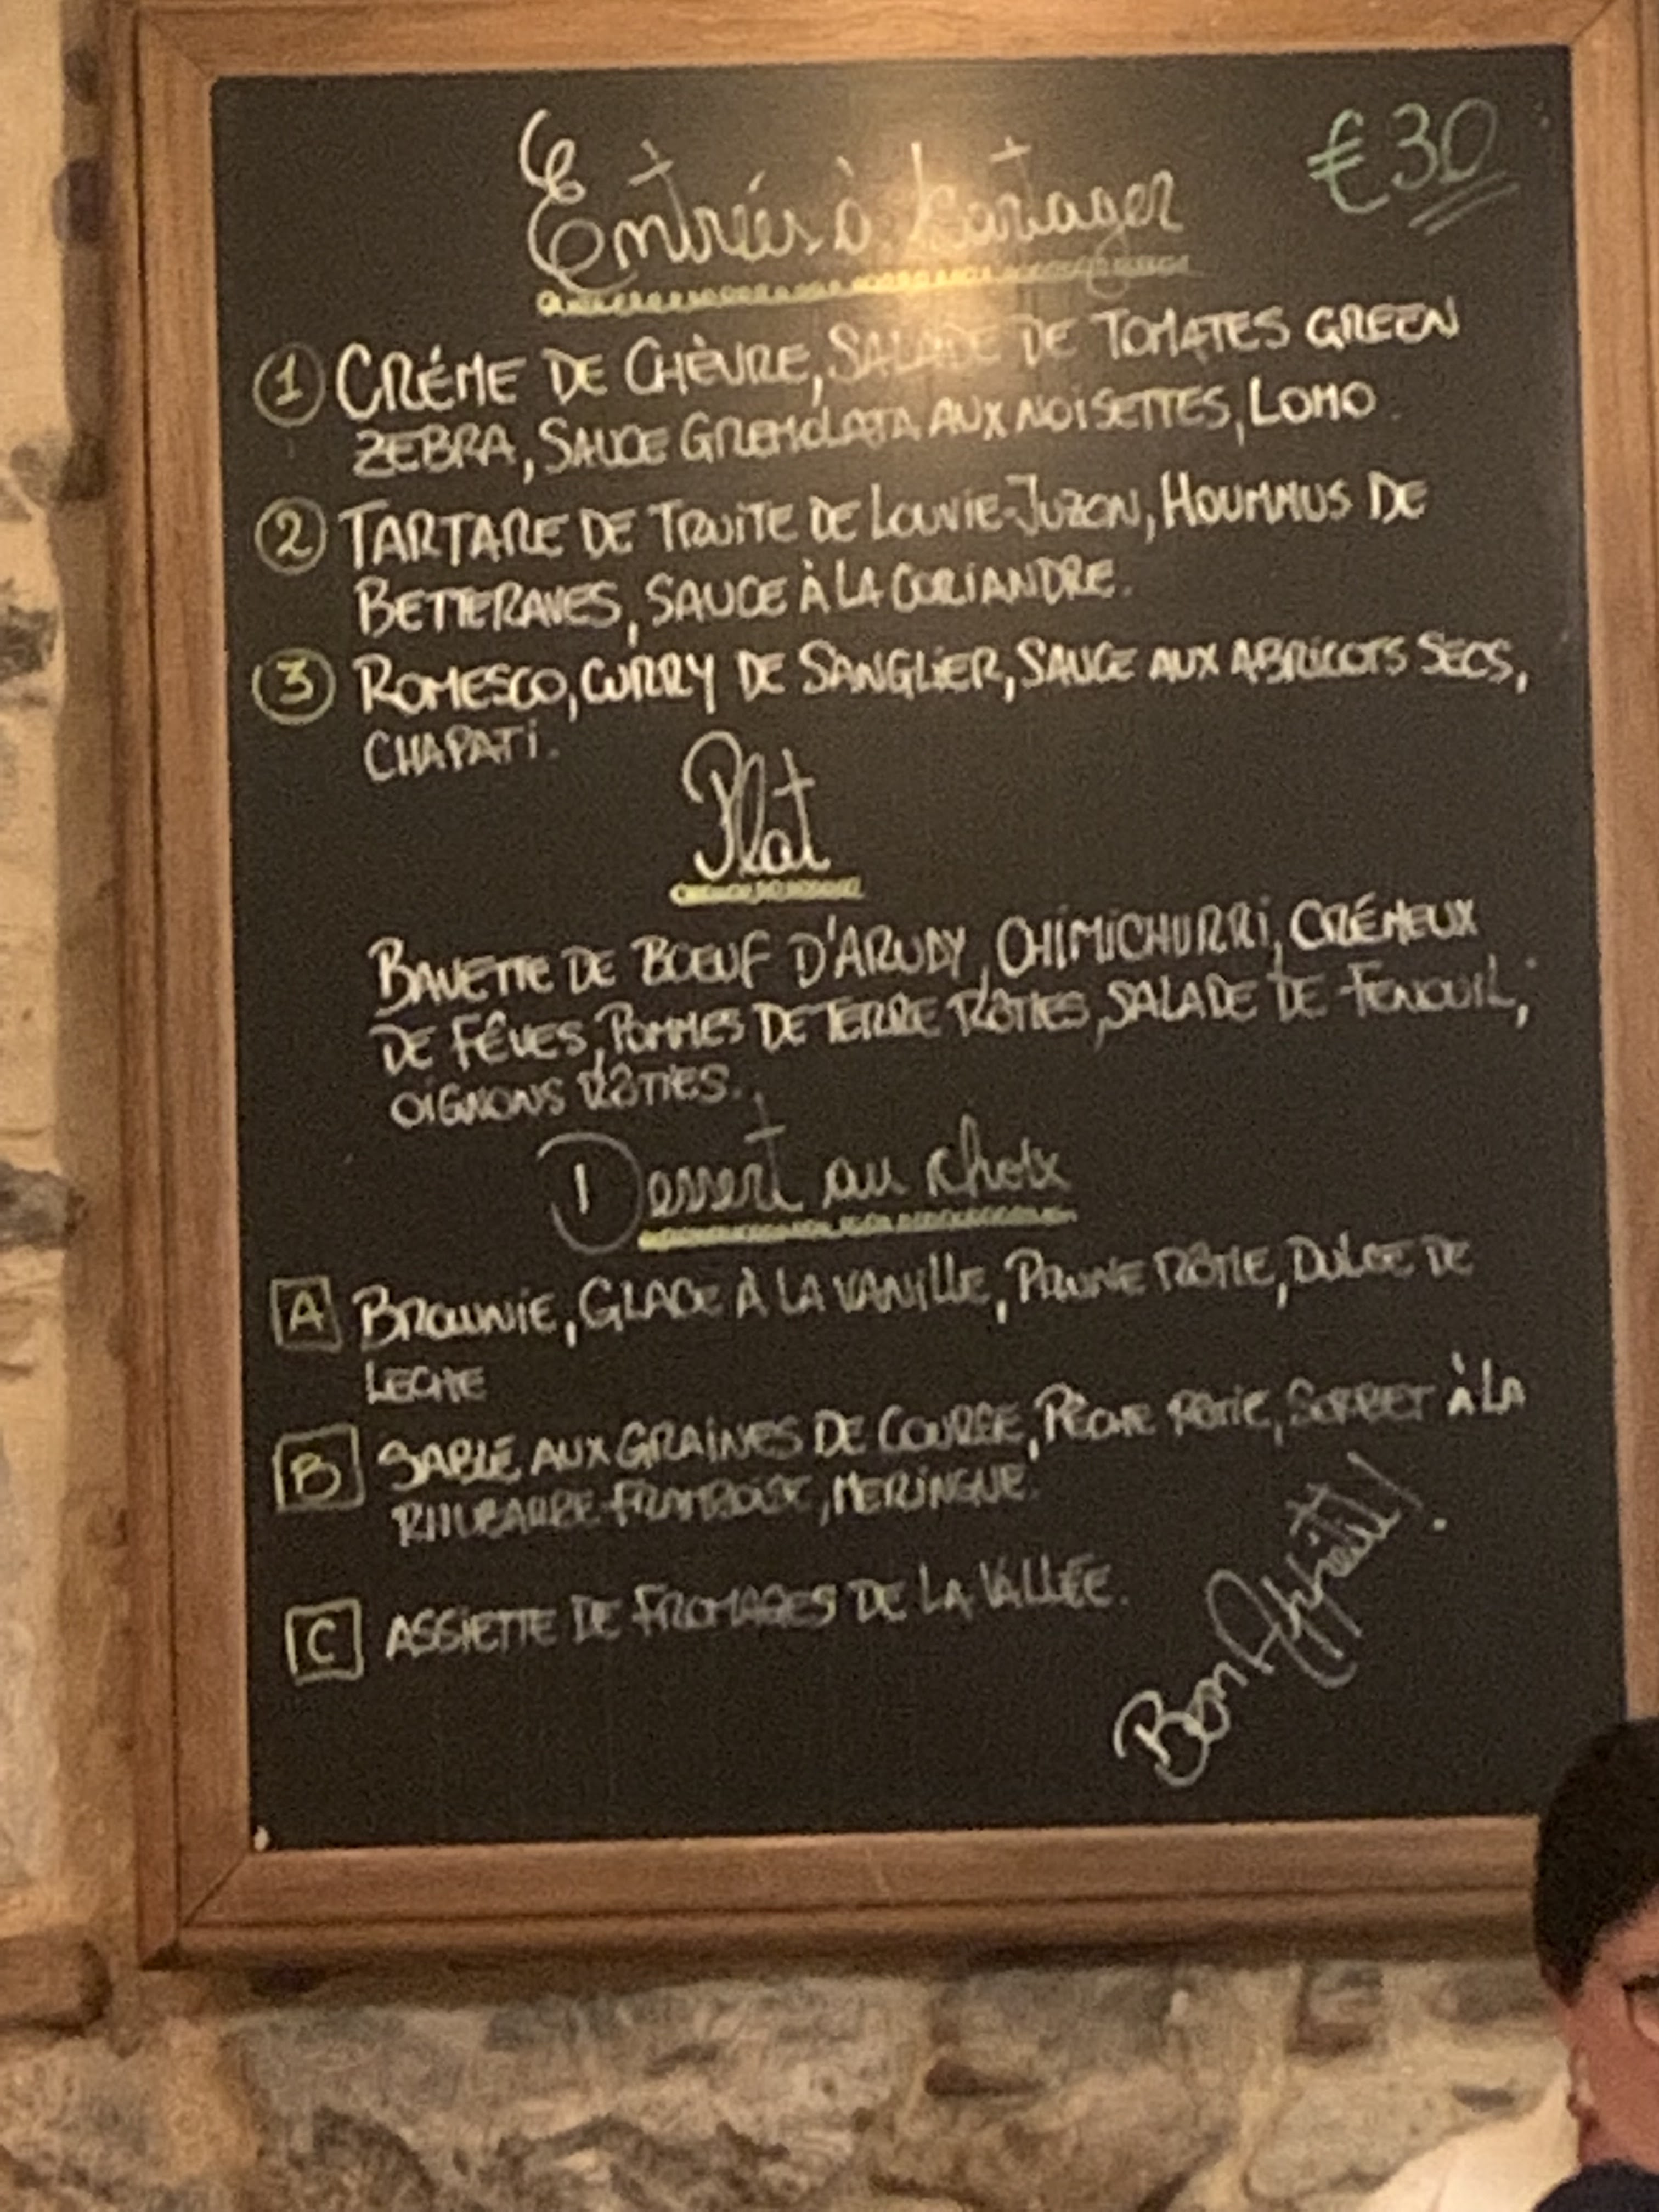 Entrées à Partager
€30
1 CRÉME DE CHÈVRE, SALADE DE TOMATES GREEN
ZEBRA, SAUCE GREMOLATA AUX NOISETTES, LOMO.
2 TARTARE DE TRUITE DE LOUVIE-JUZON, HOUMMUS DE
BETTERAVES, SAUCE À LA CORIANDRE.
3 ROMESCO, CURRY DE SANGLIER, SAUCE AUX ABRICOTS SECS,
CHAPATI.
Plat
BAVETTE DE BOEUF D'ARUDY, CHIMICHURRI, CRÉMEUX
DE FÊVES, POMMES DE TERRE RÔTIES, SALADE DE FENOUIL,
OIGNONS RÔTIES.
Dessert au choix
A BROWNIE, GLACE À LA VANILLE, PRUNE RÔTIE, DULCE DE
LECHE
B SABLÉ AUX GRAINES DE COURGE, PÊCHE RÔTIE, SORBET À LA
RHUBARBE-FRAMBOISE, MERINGUE.
C ASSIETTE DE FROMAGES DE LA VALLÉE.
Bon Appétit!